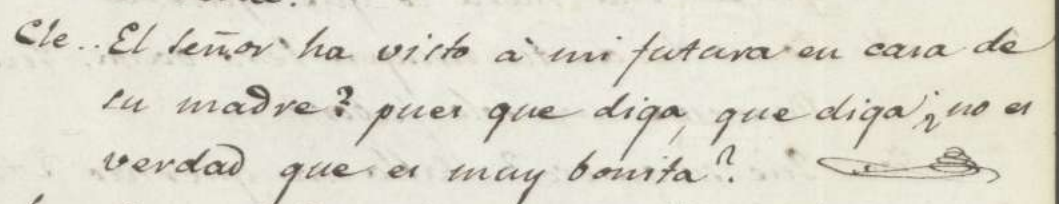 Cle.. El señor ha visto à mi futura en casa de
su madre? pues que diga, que diga; ¿no es
verdad que es muy bonita?